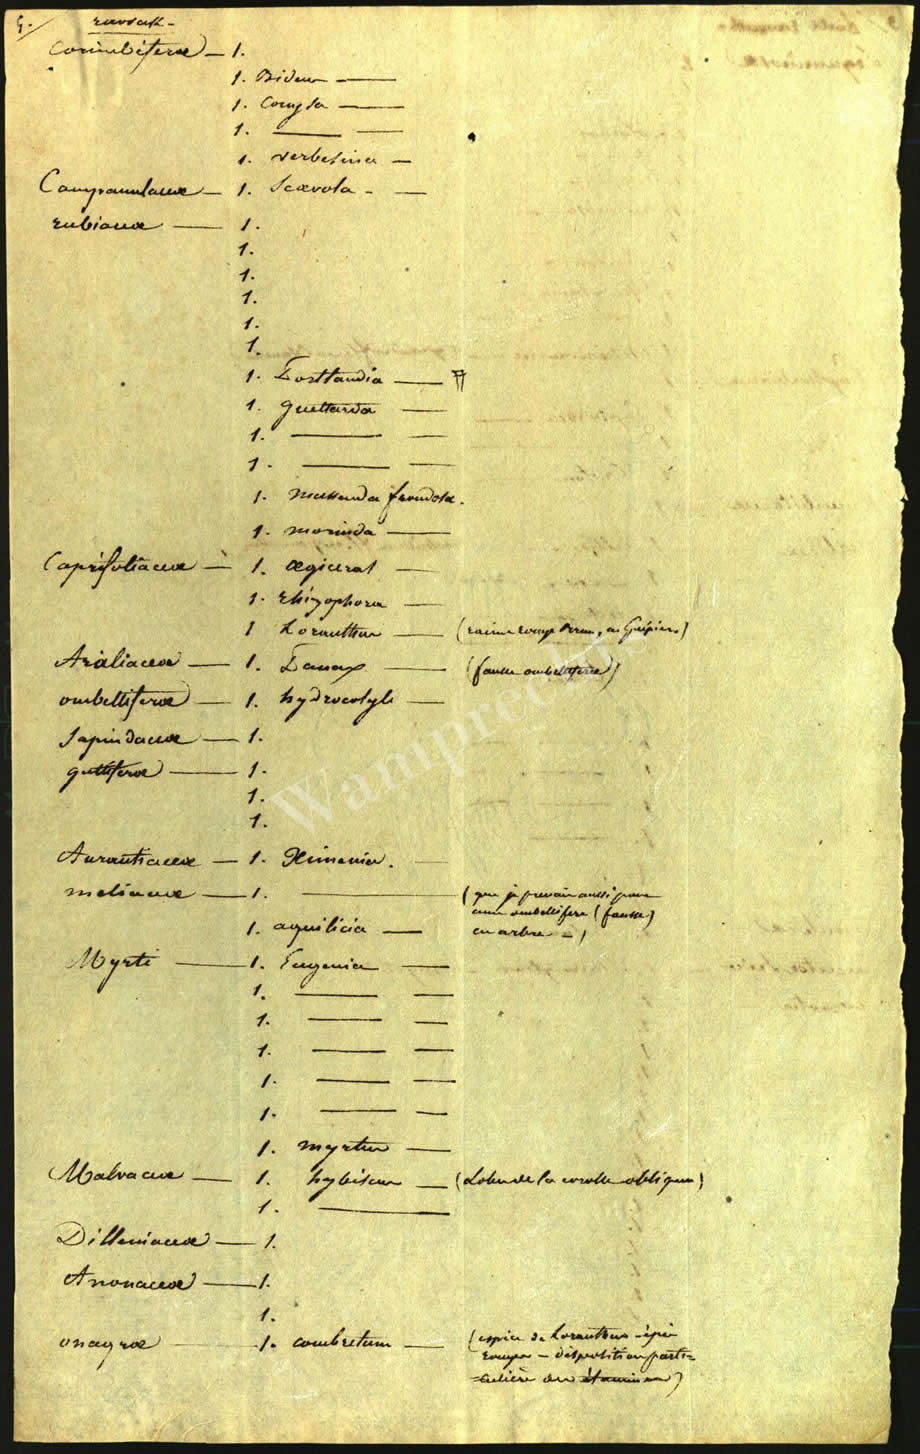 5. rawak -
Corimbiferæ — 1.
1. Bidens —
1. Conyza —
1. — —
1. verbesina —
Campanulaceæ — 1. Scævola - —
rubiaceæ — 1.
1.
1.
1.
1.
1.
1. Portlandia —
1. guettarda —
1. — —
1. — —
1. mussenda frondosa.
1. morinda —
Caprifoliaceæ — 1. ægiceras —
1. rhizophora —
1 Loranthus — (
Araliaceæ — 1. Panax — (fausse ombellifere)
ombelliferæ — 1. hydrocotyle —
Sapindaceæ — 1.
guttiferæ — 1.
1.
1.
Aurantiaceæ — 1. Ximenia. —
meliaceæ — 1. — (que je prenais aussi pour
une ombellifere (fausse)
en arbre - )
1. aquilicia —
Myrti — 1. Eugenia —
1. — —
1. — —
1. — —
1. — —
1. — —
1. myrtus —
Malvaceæ — 1. hybiscus — (Lobes de la corolle obliques)
1. —
Dilleniaceæ — 1.
Anonaceæ — 1.
1.
onagræ — 1. combretum — (espèce de Loranthus - épis
rouges - disposition parti=
=culière des étamines)
Wamprecaps